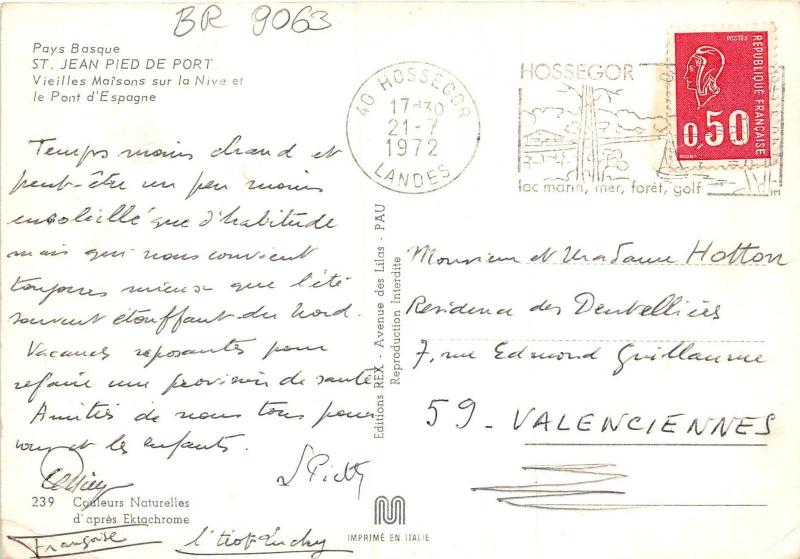 BR 9063
Pays Basque
ST. JEAN PIED DE PORT
Vieilles Maisons sur la Nive et
le Pont d'Espagne
Temps moins chaud et
peut-être un peu moins
ensoleillé que d'habitude
mais qui nous convient
toujours mieux que l'été
souvent étouffant du Nord.
Vacances reposantes pour
refaire une provision de santé
Amitiés de nous tous pour
vous et les enfants.
239 Couleurs Naturelles
d'après Ektachrome
Françoise
Editions REX - Avenue des Lilas - PAU
Reproduction Interdite
IMPRIMÉ EN ITALIE
40 HOSSEGOR
17-30
21-7
1972
LANDES
HOSSEGOR
lac marin, mer, forêt, golf
POSTES
REPUBLIQUE FRANÇAISE
0,50
Monsieur et Madame Hotton
Residence des Dentellières
7, rue Edmond Guillaume
59 - VALENCIENNES